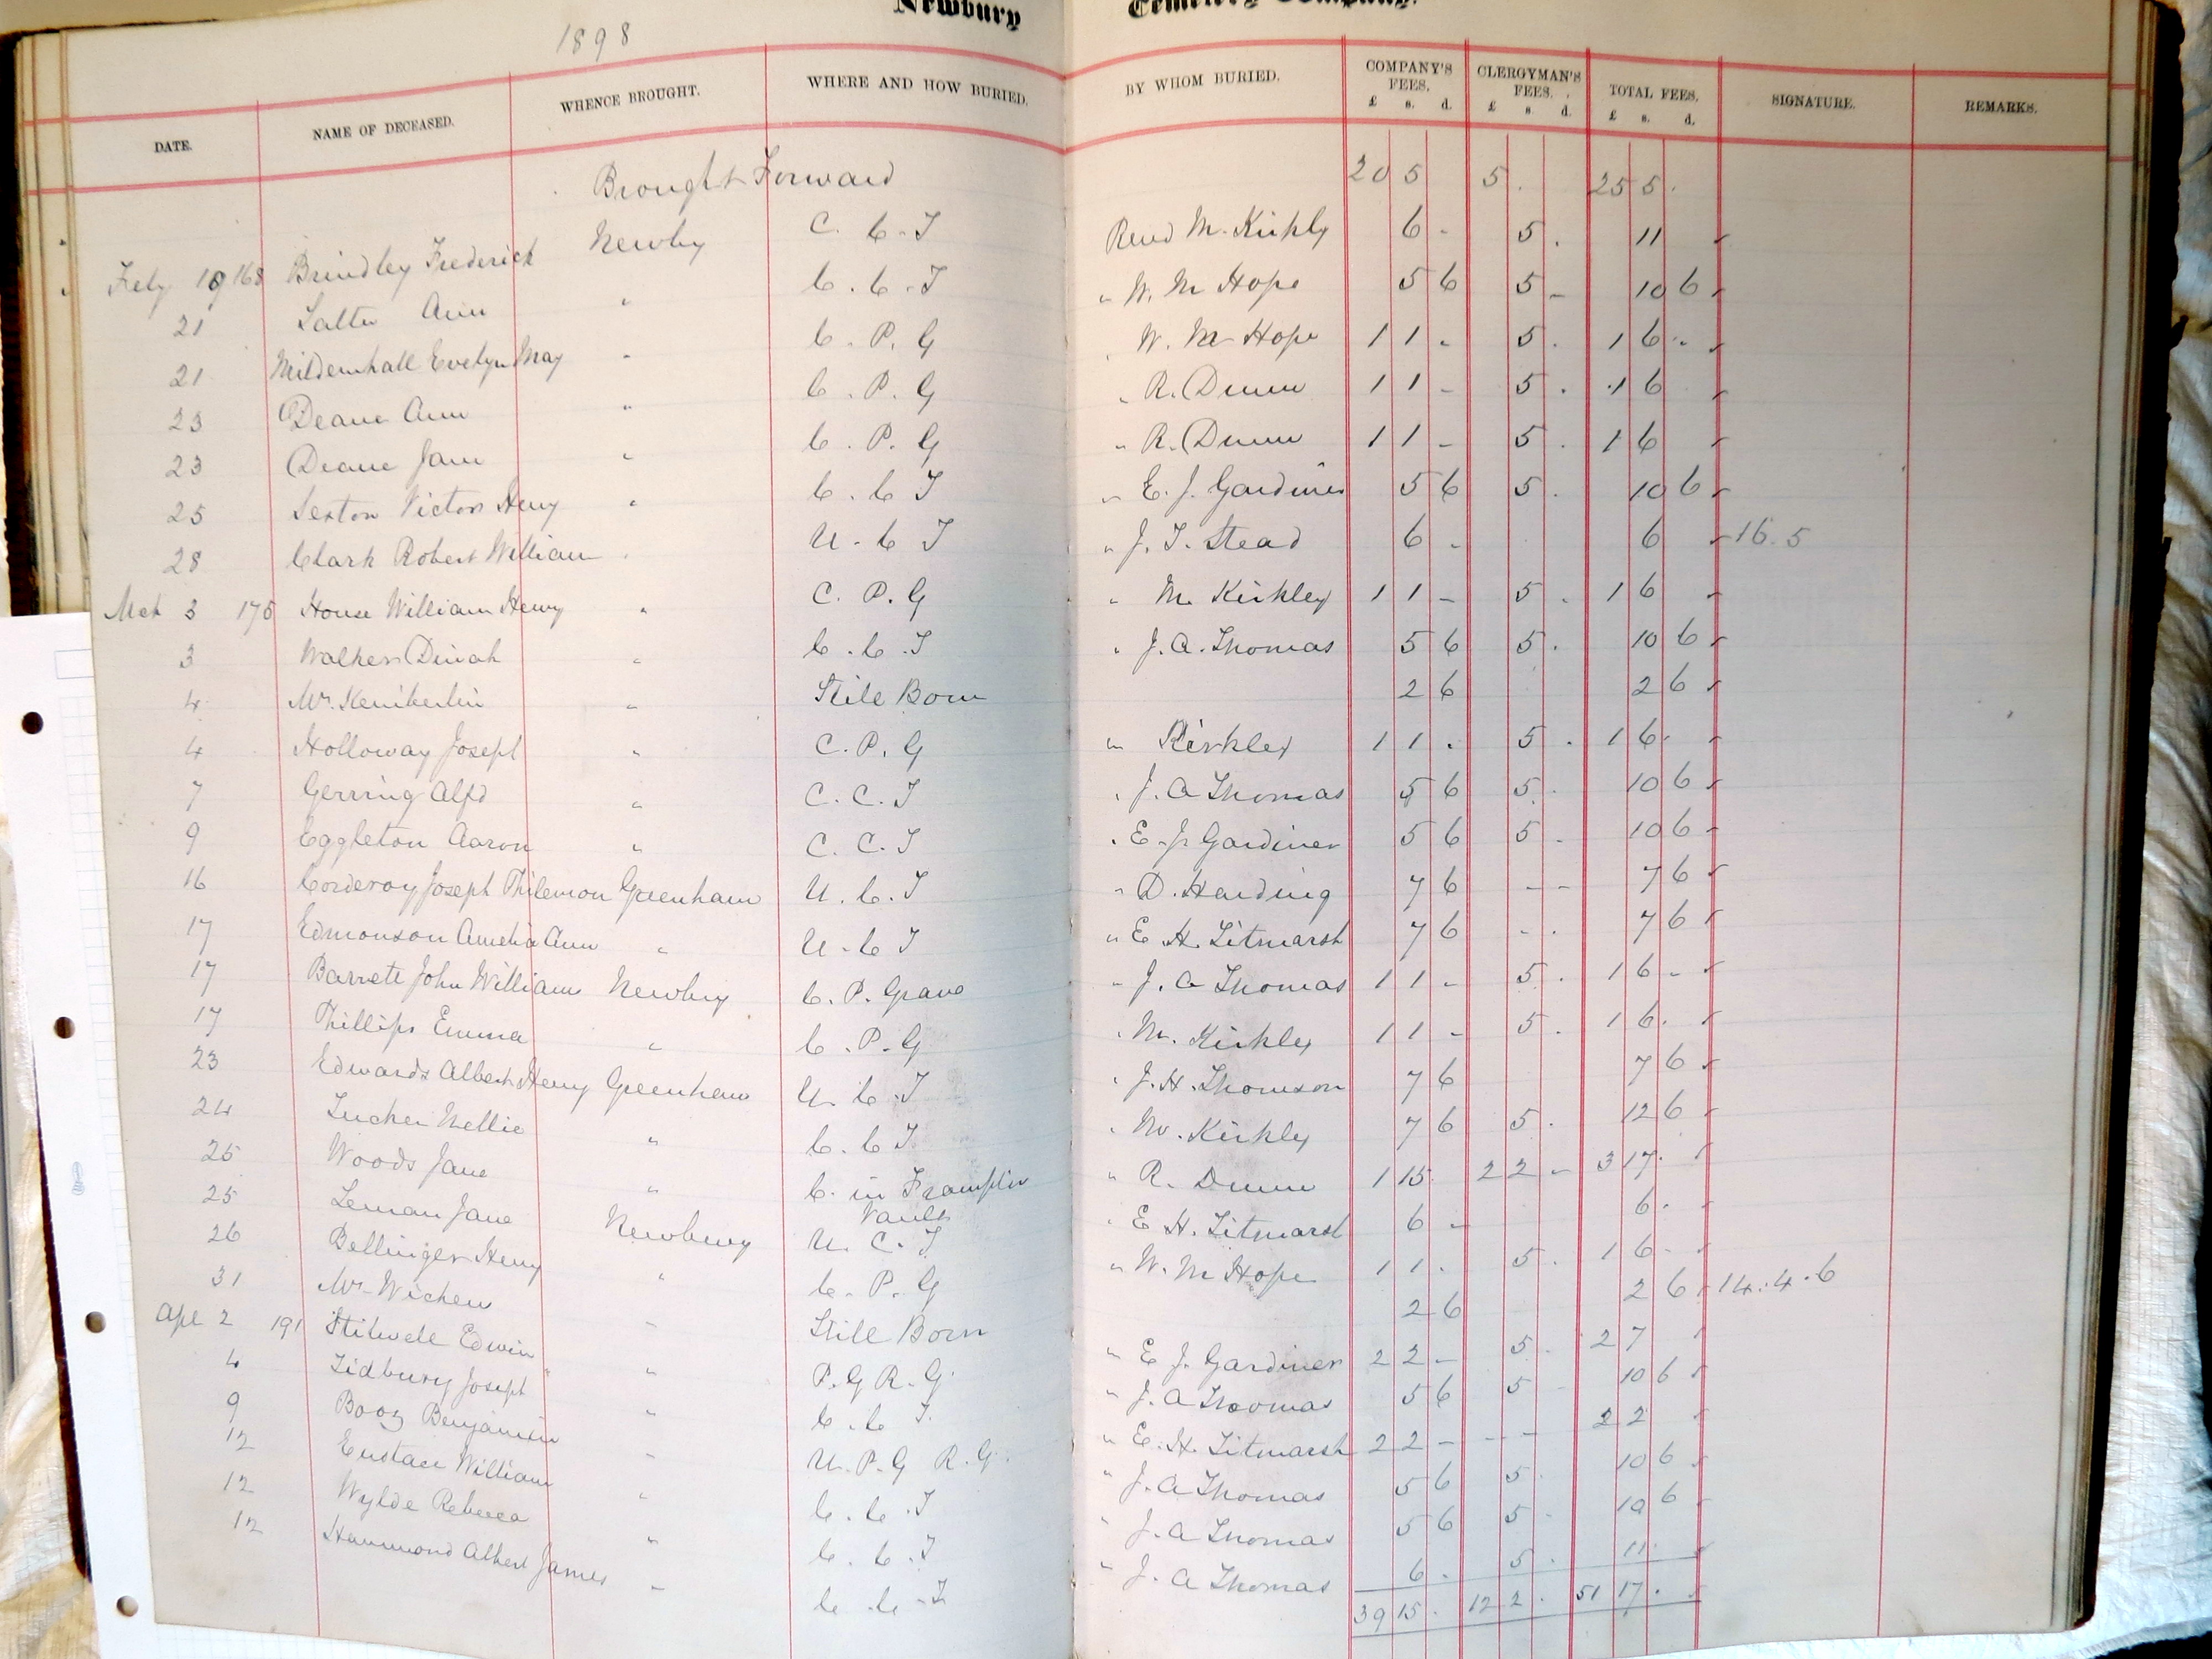 1898
Newbury Cemetery Company.
DATE. NAME OF DECEASED. WHENCE BROUGHT. WHERE AND HOW BURIED. BY WHOM BURIED. COMPANY'S FEES. £ s. d. CLERGYMAN'S FEES. £ s. d. TOTAL FEES. £ s. d. SIGNATURE. REMARKS.
Brought Forward 20 5 5 . 25 5 .
Feby 19 168 Brindley Frederick Newby C. C. T Revd M. Kirkby 6 - 5 . 11
21 Salter Ann " C. C. T " W. M Hope 5 6 5 - 10 6
21 Mildenhall Evelyn May " C. P. G W. M Hope 1 1 - 5 . 1 6 -
23 Deane Ann " C. P. G " R. Dunn 1 1 - 5 . 1 6
23 Deane Jane " C. P. G " R. Dunn 1 1 - 5 . 1 6
25 Sexton Victor Henry " C. C T " E. J. Gardiner 5 6 5 . 10 6
28 Clark Robert William " U. C T " J. T. Stead 6 - 6 16.5
Mch 3 175 House William Henry " C. P. G " M. Kirkley 1 1 - 5 . 1 6
3 Walker Dinah " C. C. T " J. A. Thomas 5 6 5 . 10 6
4 Mr. " Stile Born 2 6 2 6
4 Holloway Joseph " C. P. G " Kirkley 1 1 . 5 . 1 6 .
7 Gerring Alfd " C. C. T " J. A Thomas 5 6 5 . 10 6
9 Eggleton Aaron " C. C. T " E. J. Gardiner 5 6 5 - 10 6
16 Corderoy Joseph Philemon Greenham U. C. T " D. Harding 7 6 - - 7 6
17 Edmonson Amelia Ann " U. C T " E. H. Titmarsh 7 6 - . 7 6
17 Barrett John William Newbury C. P. Grave " J. A Thomas 1 1 - 5 . 1 6 -
17 Phillips Emma " C. P. G " M. Kirkley 1 1 - 5 . 1 6 .
23 Edwards Albert Henry Greenham U. C. T " J. H. Thomson 7 6 7 6
24 Tucker Nellie " C. C T " M. Kirkley 7 6 5 . 12 6
25 Woods Jane " C. in Framplin Vault " R. Dunn 1 15 2 2 - 3 17 .
25 Leman Jane Newbury U. C. T " E. H. Titmarsh 6 - 6 .
26 Bellinger Henry " C. P. G " W. M Hope 1 1 . 5 . 1 6 -
31 Mr. Wichen " Stile Born 2 6 2 6 14.4.6
Apl 2 191 Stilwele Edwin " P. G R. G. " E J. Gardiner 2 2 - 5 . 2 7
4 Tidbury Joseph " C. C T. " J. A Thomas 5 6 5 10 6
9 Booz Benjamin " U. P. G R. G. " E. H. Titmarsh 2 2 - - - 2 2
12 Eustace William " C. C. T " J. A Thomas 5 6 5 . 10 6
12 Wylde Rebecca " C. C. T " J. A Thomas 5 6 5 . 10 6
12 Hammond Albert James " C. C. T " J. A Thomas 6 . 5 . 11 .
39 15 . 12 2 . 51 17 .